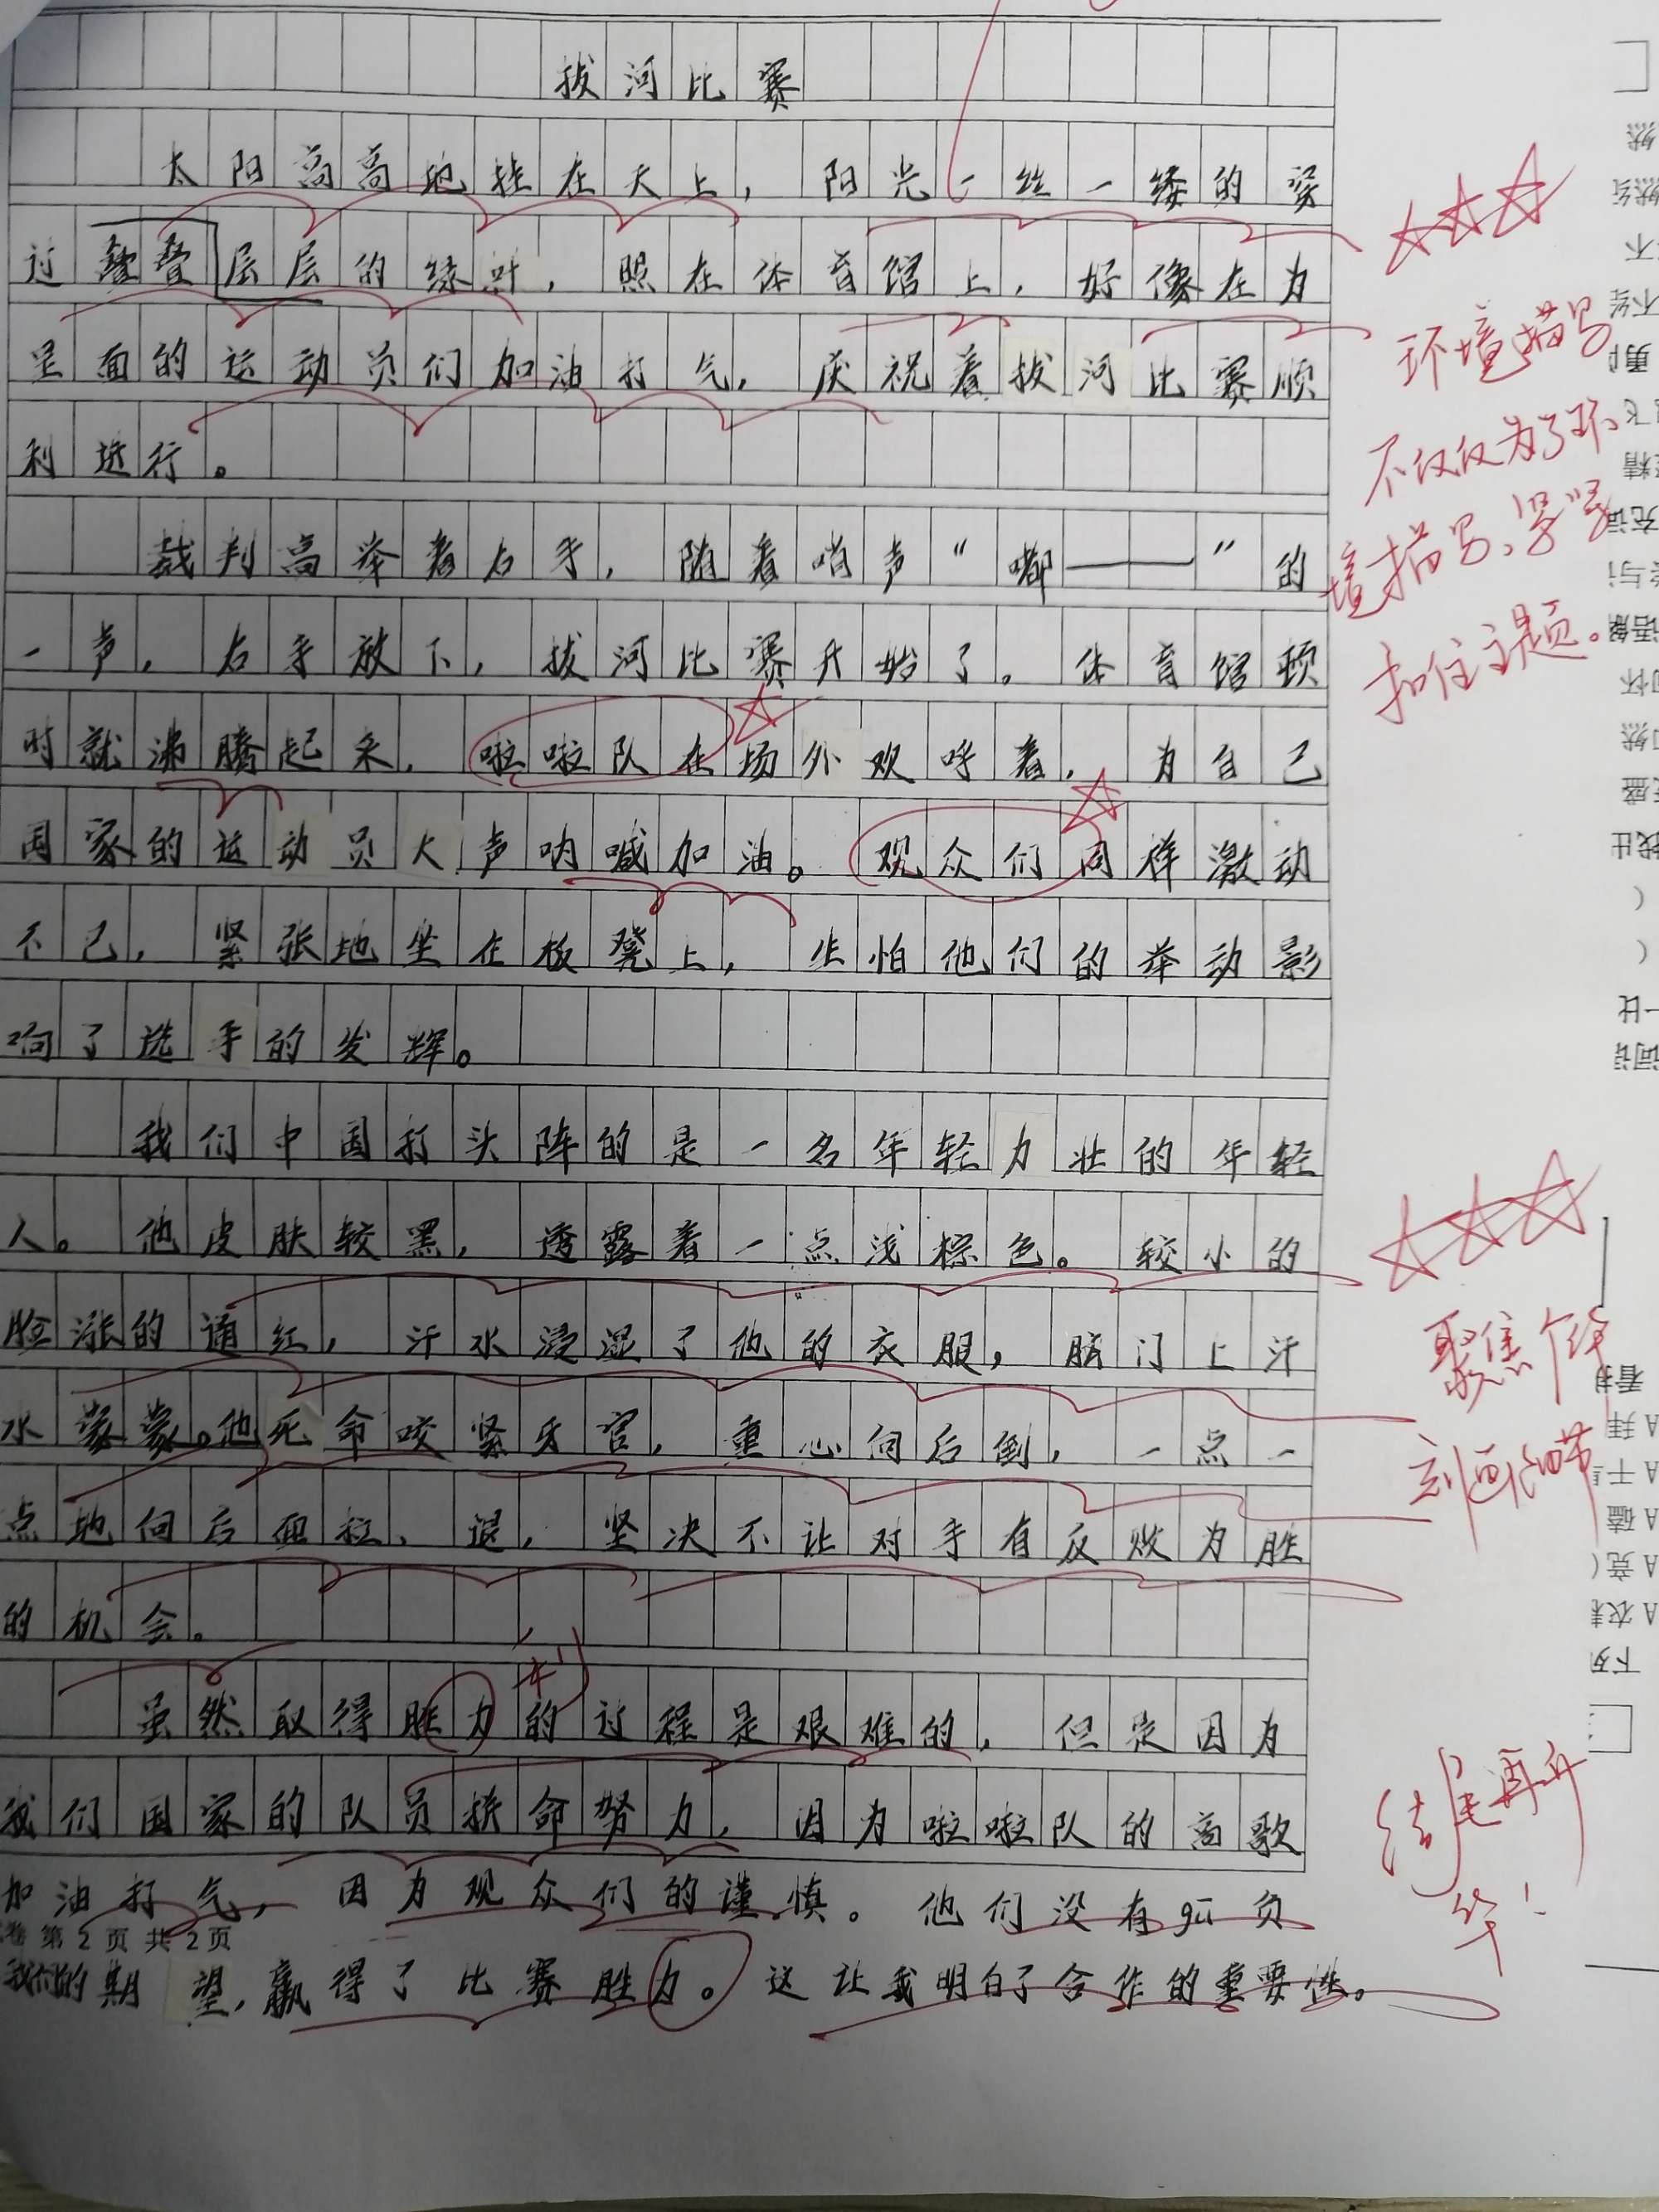 拔河比赛
太阳高高地挂在天上，阳光一丝一缕的穿
过叠叠层层的绿叶，照在体育馆上，好像在为
里面的运动员们加油打气，庆祝着拔河比赛顺
利进行。
裁判高举着右手，随着哨声“嘟——”的
一声，右手放下，拔河比赛开始了。体育馆顿
时就沸腾起来，啦啦队在场外观呼着，为自己
国家的运动员大声呐喊加油。观众们同样激动
不已，紧张地坐在板凳上，生怕他们的举动影
响了选手的发辉。
我们中国打头阵的是一名年轻力壮的年轻
人。他皮肤较黑，透露着一点浅棕色。较小的
脸涨的通红，汗水浸湿了他的衣服，脑门上汗
水蒙蒙。他死命咬紧牙官，重心向后倒，一点一
点地向后面拉、退，坚决不让对手有反败为胜
的机会。
利
虽然取得胜力的过程是艰难的，但是因为
我们国家的队员拼命努力，因为啦啦队的高歌
加油打气，因为观众们的谨慎。他们没有gū负
卷 第2页 共2页
我们的期望，赢得了比赛胜力。这让我明白了合作的重要性。
环境描写
不仅仅为了环
境描写、紧紧
扣住主题。
聚焦个体
刻画细节
结尾再升
华！